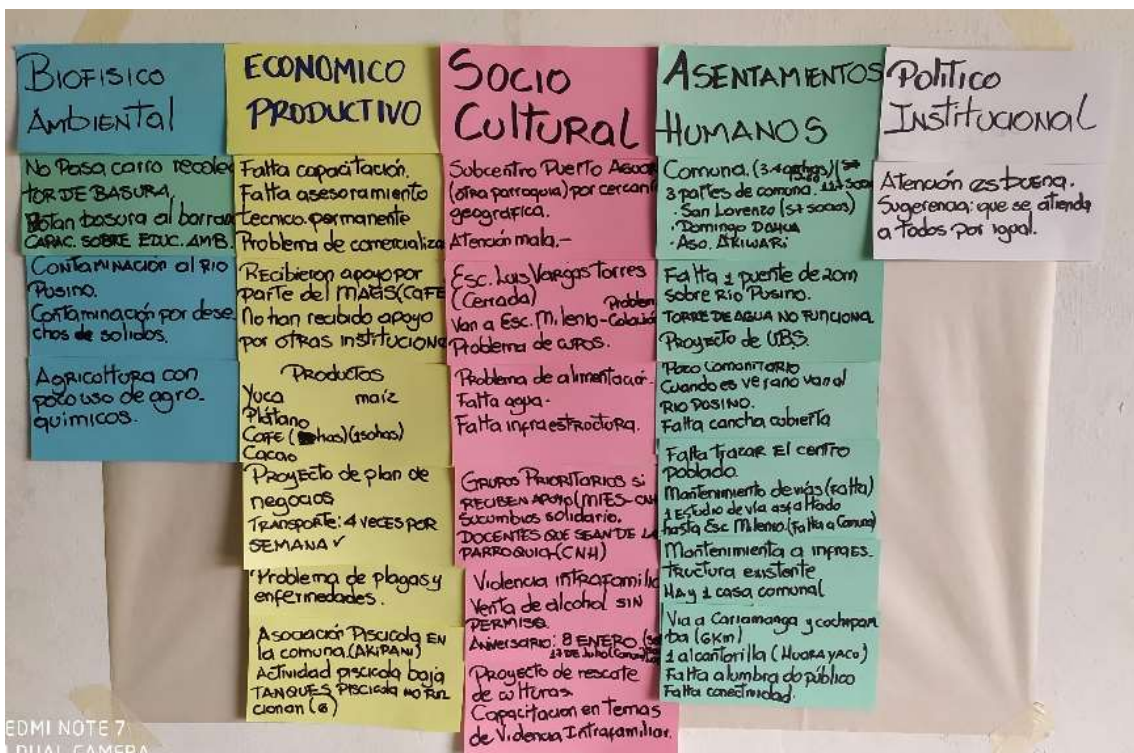 BIOFISICO
AMBIENTAL
No Pasa carro recolec
TOR DE BASURA,
Botan basura al barran
CAPAC. SOBRE EDUC. AMB.
CONTAMINACIÓN al RIO
PUSINO.
Contaminación por dese
chos de solidos.
Agricoltura con
poco uso de agro-
químicos.
ECONOMICO
PRODUCTIVO
Falta capacitación.
Falta asesoramiento
tecnico. permanente
Problema de comercializa
Recibieron apoyo por
parte del MAGIS (CAFE
No han recibido apoyo
por otras institucione
PRODUCTOS
Yuca maíz
Plátano
CAFE ( has) (150has)
Cacao
Proyecto de plan de
negocios
TRANSPORTE: 4 VECES POR
SEMANA ✓
Problema de plagas y
enfermedades.
Asociación Piscicola EN
la comuna. (AKIPANI)
Actividad piscicola baja
TANQUES PISCICOLA NO FUN
cionan (6)
SOCIO
CULTURAL
Subcentro Puerto
(otra parroquia) por cercaní
geográfica.
Atención mala.-
Esc. Luis Vargas Torres
(Cerrada)
Van a Esc. Milenio-Colación
Problem
Problema de cupos.
Problema de alimentació.
Falta agua.
Falta infraestructura.
GRUPOS PRIORITARIOS SI
RECIBEN APOYO (MIES-CNH
Sucumbios solidario.
DOCENTES QUE SEAN DE LA
PARROQUIA (CNH)
Violencia intrafamilia
Venta de alcohol SIN
PERMISO.
Aniversario: 8 ENERO
17 DE Julio
Proyecto de rescate
de culturas.
Capacitacion en temas
de Violencia Intrafamiliar.
ASENTAMIENTOS
HUMANOS
Comuna.
3 partes de comuna.
• San Lorenzo (57 socios)
• Domingo DAHUA
• Aso. AKIWARI
Falta 1 puente de 20m
sobre Río Pusino.
TORRE DE AGUA NO FUNCIONA
Proyecto de UBS.
Pozo Comunitario
Cuando es verano van al
RIO POSINO.
Falta cancha cubierta
Falta trazar El centro
poblado.
Mantenimiento de vías (falta)
1 Estudio de vía asfaltado
hasta Esc Milenio. (Falta a Comuna)
Mantenimienta a infraes-
tructura existente
HAY 1 casa comunal
Via a Cariamanga y cochapam
ba (6Km)
1 alcantarilla (HUARAYACO)
Falta alumbra do público
Falta conectividad.
Político
Institucional
Atención es buena.
Sugerencia: que se atienda
a todos por igual.
EDMI NOTE 7
DUAL CAMERA